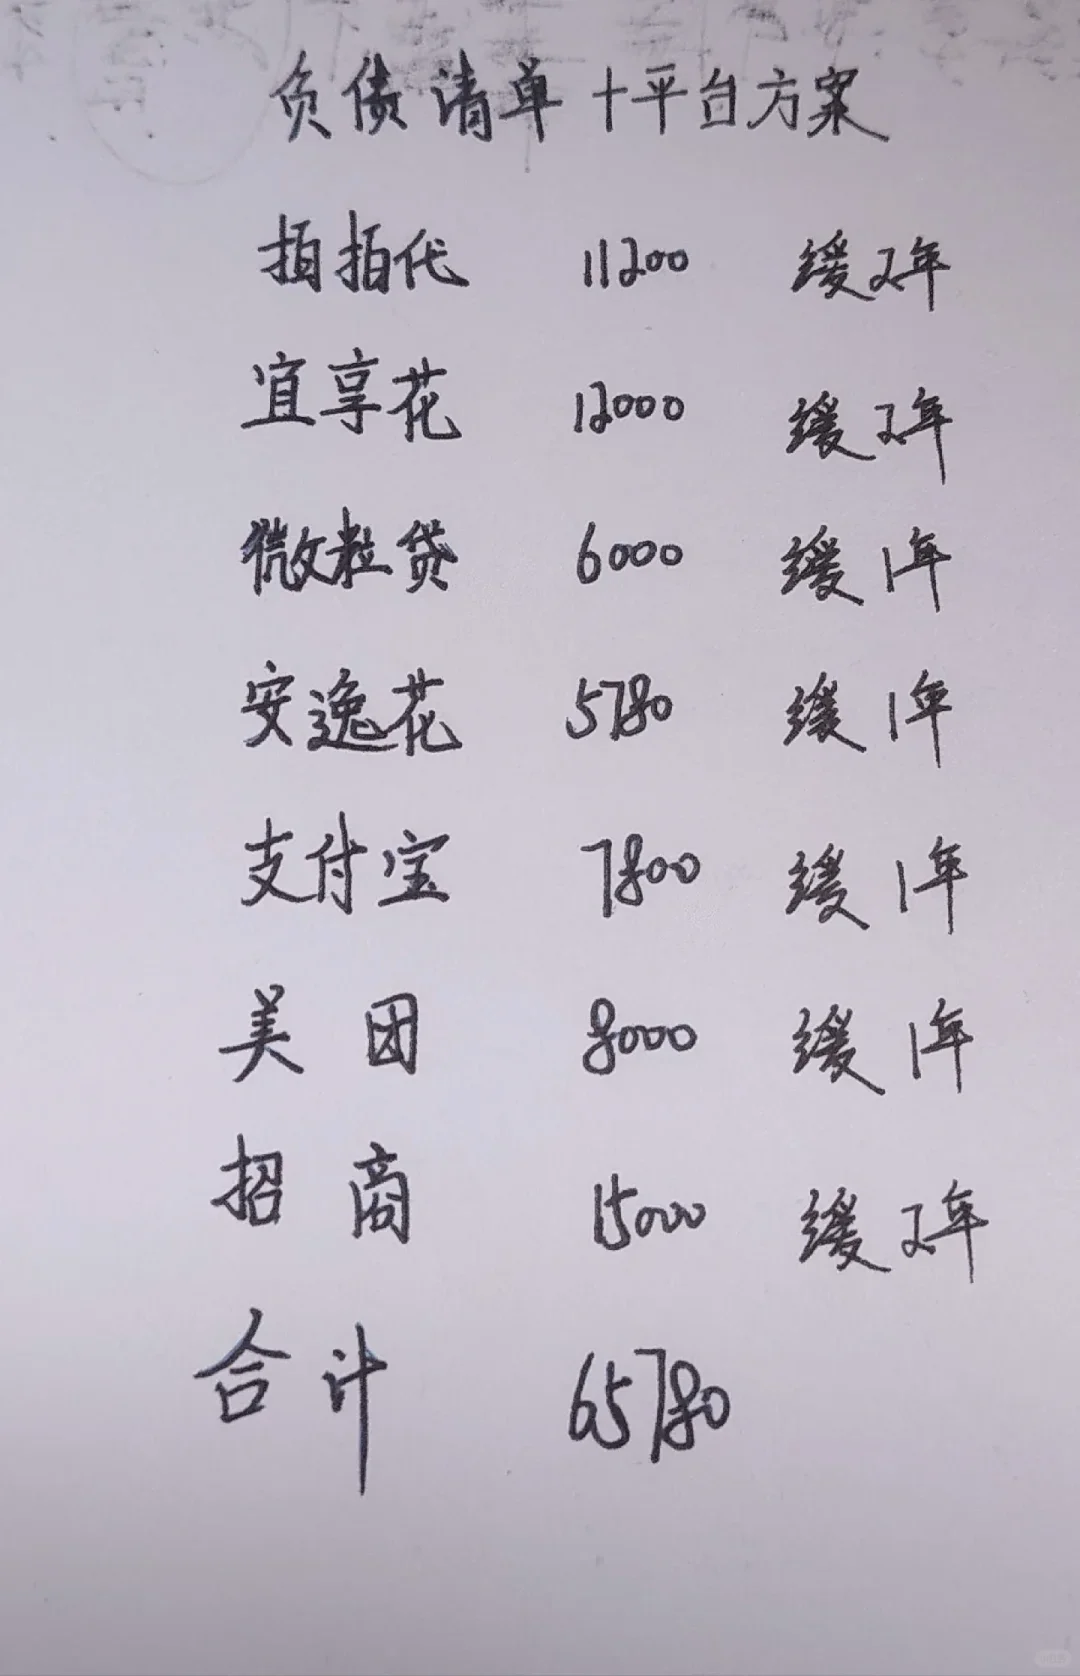 负债清单+平台方案
拍拍代 11200 缓2年
宜享花 12000 缓2年
微粒贷 6000 缓1年
安逸花 5780 缓1年
支付宝 7800 缓1年
美团 8000 缓1年
招商 15000 缓2年
合计 65780